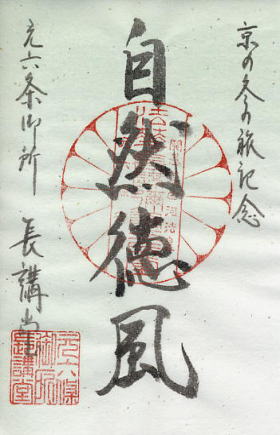 京の冬の旅記念
自然徳風
元六条御所
長講堂
元六條
御所
長講堂